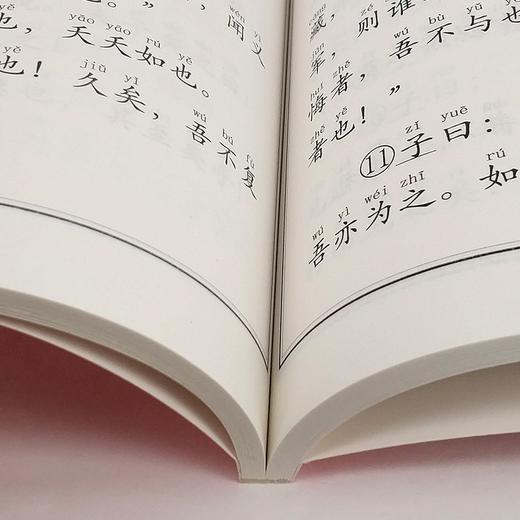 wén yì
，闻义
yāo yāo rú yě
也，夭夭如也。
jiǔ yǐ wú bù fù
也！久矣，吾不复
藏，
zé
军，则谁
huǐ zhě wú bù yǔ yě
悔者，吾不与也
zhě yě
者也！”
zǐ yuē
⑪子曰：
wú yì wéi zhī rú
吾亦为之。如